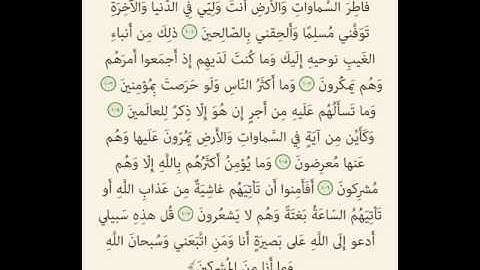 فاطِرَ السَّماواتِ وَالأَرضِ أَنتَ وَلِيّي فِي الدُّنيا وَالآخِرَةِ
تَوَفَّني مُسلِمًا وَأَلحِقني بِالصّالِحينَ ﴿١٠١﴾ ذلِكَ مِن أَنباءِ
الغَيبِ نوحيهِ إِلَيكَ وَما كُنتَ لَدَيهِم إِذ أَجمَعوا أَمرَهُم
وَهُم يَمكُرونَ ﴿١٠٢﴾ وَما أَكثَرُ النّاسِ وَلَو حَرَصتَ بِمُؤمِنينَ ﴿١٠٣﴾
وَما تَسأَلُهُم عَلَيهِ مِن أَجرٍ إِن هُوَ إِلّا ذِكرٌ لِلعالَمينَ ﴿١٠٤﴾
وَكَأَيِّن مِن آيَةٍ فِي السَّماواتِ وَالأَرضِ يَمُرّونَ عَلَيها وَهُم
عَنها مُعرِضونَ ﴿١٠٥﴾ وَما يُؤمِنُ أَكثَرُهُم بِاللَّهِ إِلّا وَهُم
مُشرِكونَ ﴿١٠٦﴾ أَفَأَمِنوا أَن تَأتِيَهُم غاشِيَةٌ مِن عَذابِ اللَّهِ أَو
تَأتِيَهُمُ السّاعَةُ بَغتَةً وَهُم لا يَشعُرونَ ﴿١٠٧﴾ قُل هذِهِ سَبيلي
أَدعو إِلَى اللَّهِ عَلى بَصيرَةٍ أَنا وَمَنِ اتَّبَعَني وَسُبحانَ اللَّهِ
وَما أَنا مِنَ المُشرِكينَ﴾